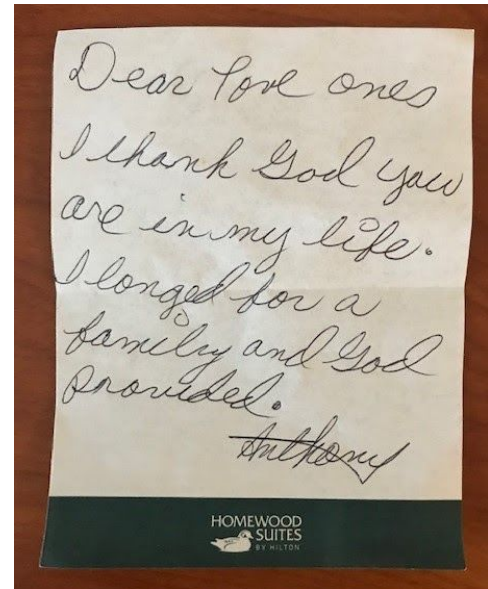 Dear love ones
I thank God you
are in my life.
I longed for a
family and God
provided.
Anthony
HOMEWOOD
SUITES
BY HILTON